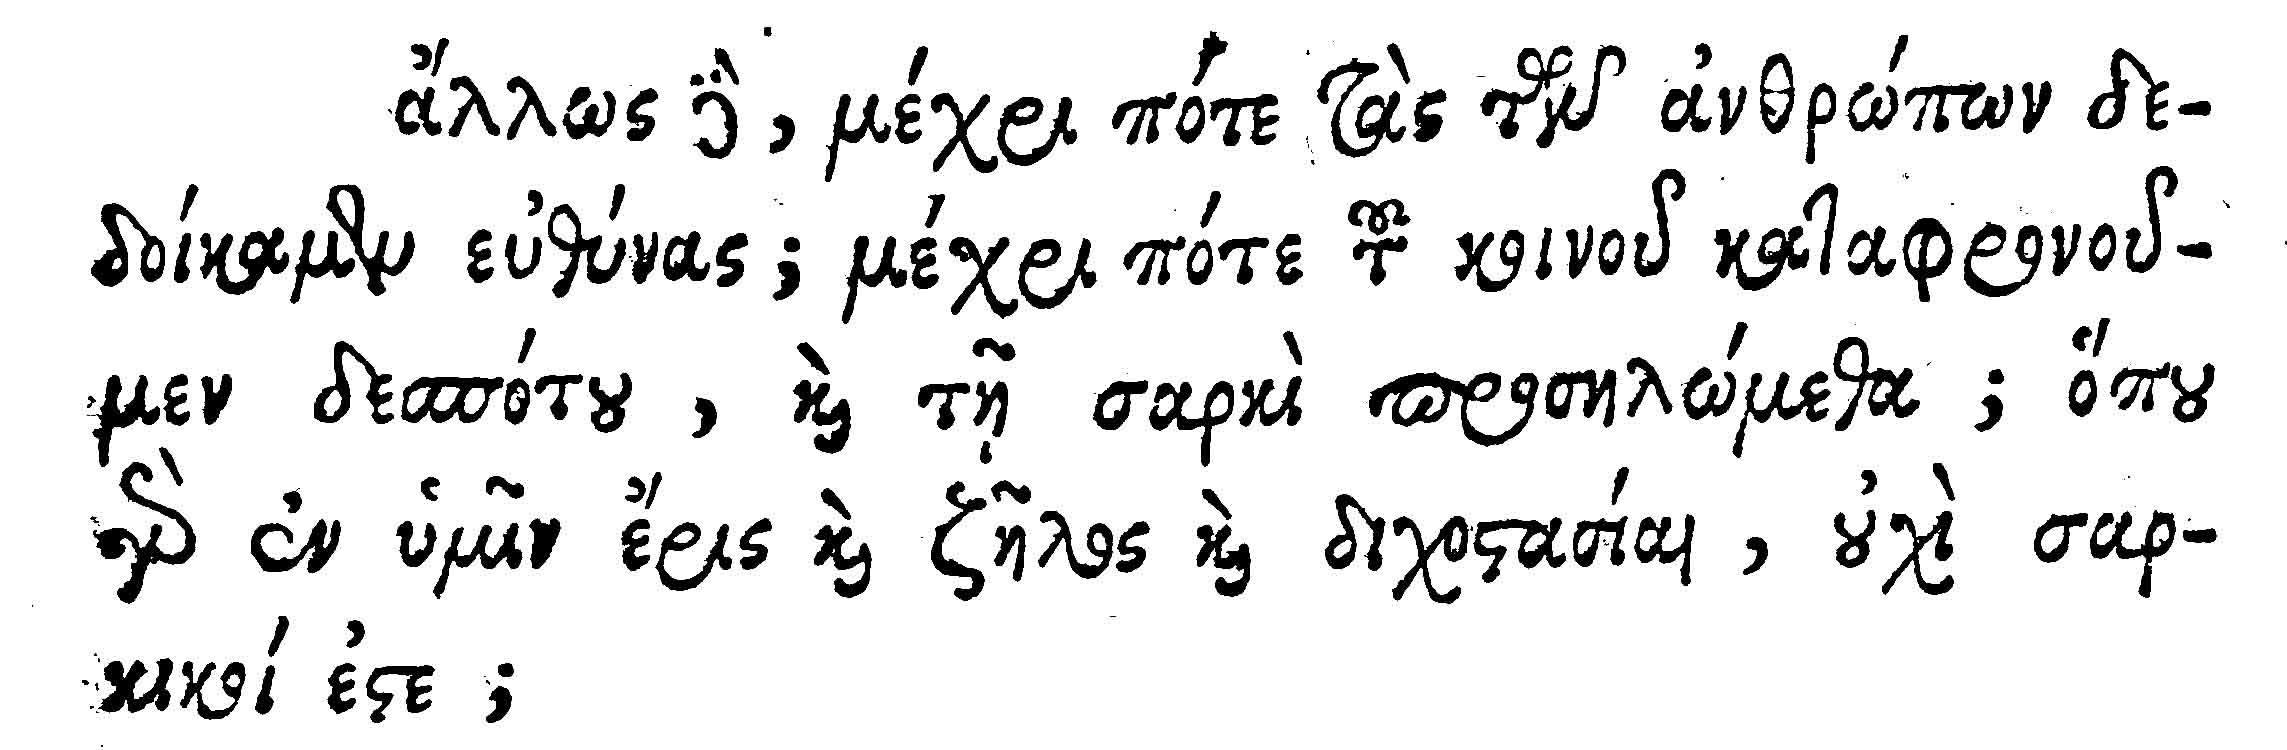 ἄλλως δὲ, μέχρι πότε τὰς τῶν ἀνθρώπων δε-
δοίκαμεν εὐθύνας; μέχρι πότε τοῦ κοινοῦ καταφρονοῦ-
μεν δεσπότου, καὶ τῇ σαρκὶ προσηλώμεθα; ὅπου
γὰρ ἐν ὑμῖν ἔρις καὶ ζῆλος καὶ διχοστασίαι, οὐχὶ σαρ-
κικοί ἐστε;